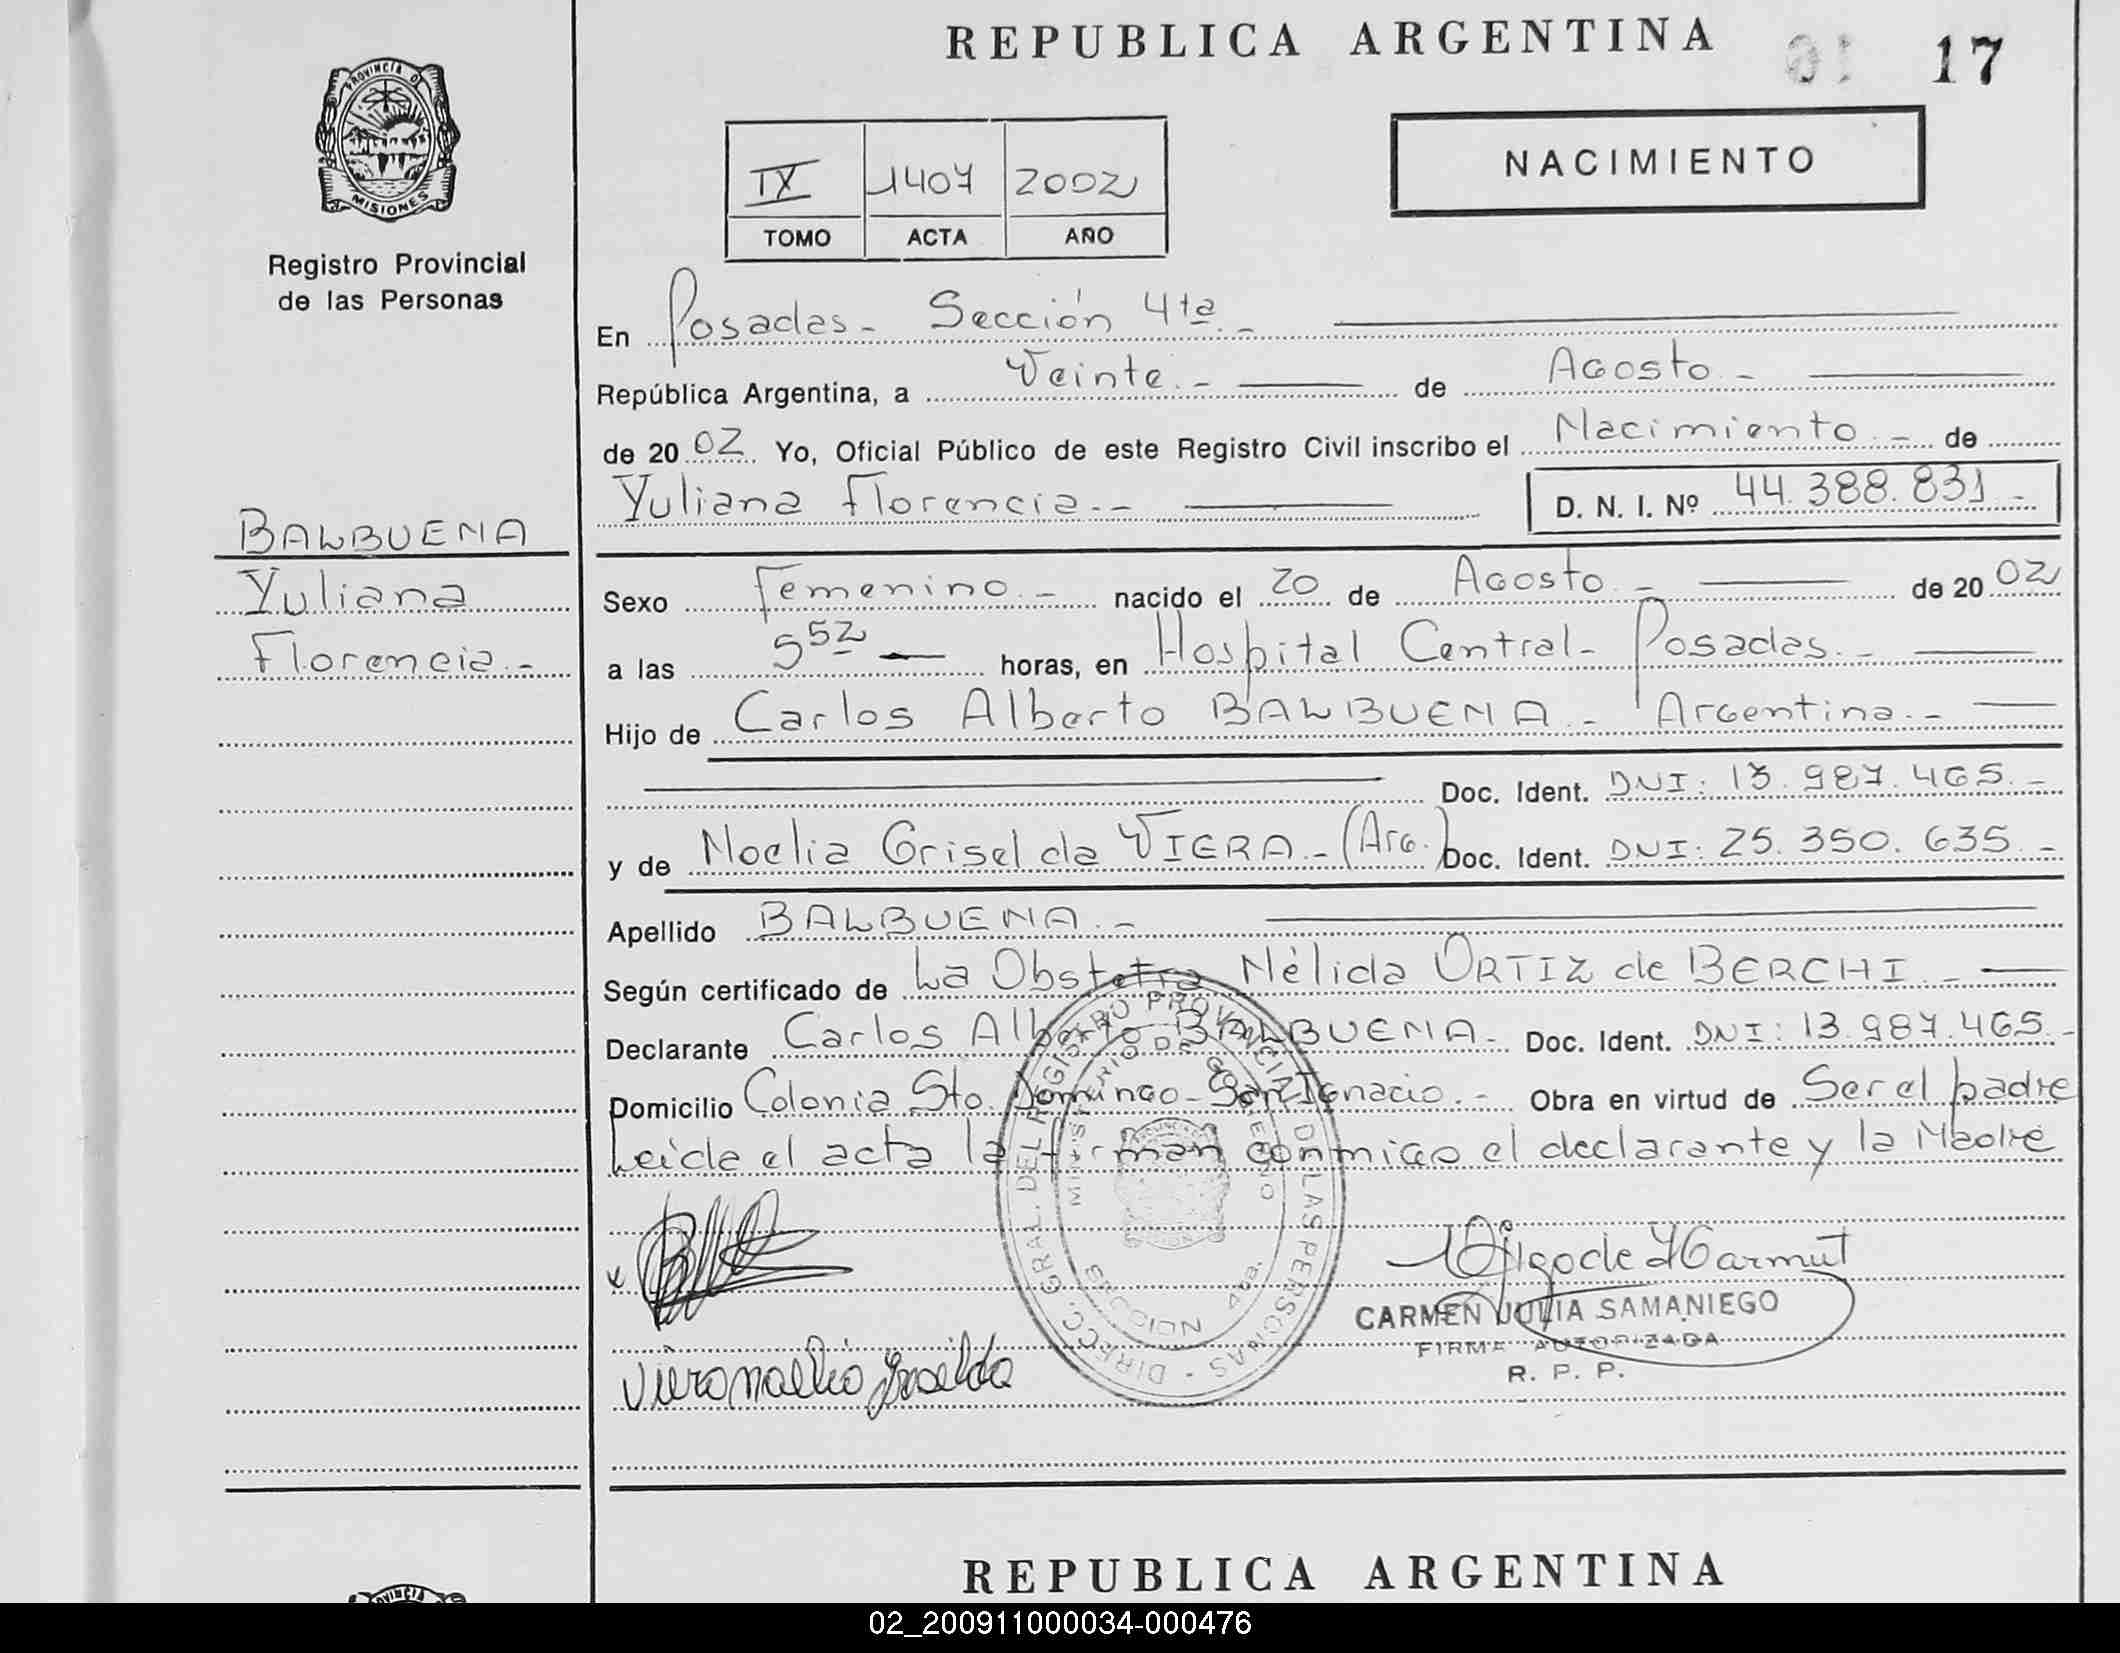 REPUBLICA ARGENTINA
01 17
PROVINCIA D
MISIONES
Registro Provincial
de las Personas
NACIMIENTO
IX 1407 2002
TOMO ACTA AÑO
En Posadas.- Sección 4ta.-
República Argentina, a Veinte.- de Agosto.-
de 20 02 Yo, Oficial Público de este Registro Civil inscribo el Nacimiento.- de
Yuliana Florencia.-
D. N. I. Nº 44.388.831.-
BALBUENA
Yuliana
Florencia.-
Sexo Femenino.- nacido el 20 de Agosto.- de 20 02
a las 5 52 horas, en Hospital Central- Posadas.-
Hijo de Carlos Alberto BALBUENA.- Argentina.-
Doc. Ident. DNI: 13.987.465.-
y de Noelia Griselda VIERA.-(Arg.) Doc. Ident. DNI: 25.350.635.-
Apellido BALBUENA.-
Según certificado de La Obstetra Nélida ORTIZ de BERCHI.-
Declarante Carlos Alberto BALBUENA.- Doc. Ident. DNI: 13.987.465.-
Domicilio Colonia Sto. Domingo- San Ignacio.- Obra en virtud de Ser el padre
Leida el acta la firman conmigo el declarante y la Madre
DIRECC. GRAL. DEL REGISTRO PROVINCIAL DE LAS PERSONAS
MINISTERIO DE GOBIERNO
SECCION 4ta.
CARMEN JULIA SAMANIEGO
FIRMA AUTORIZADA
R. P. P.
Viera noelia Griselda
REPUBLICA ARGENTINA
PROVINCIA
02_200911000034-000476